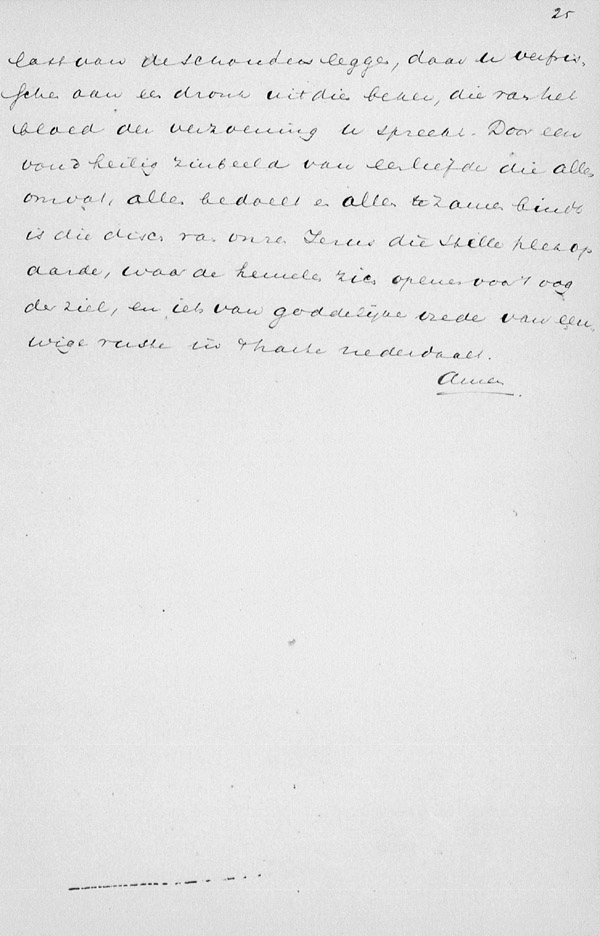 25
last van de schouders leggen, daar u verfris,
schen aan een dronk uit die beker, die van het
bloed der verzoening u spreekt. Door een
vond heilig zinbeeld van een liefde die alles
omvat, alles bedoelt en alles te zamen bindt
is die disch van onzen Jezus die stille plek op
aarde, waar de hemelen zich openen voor 't oog
der ziel, en iets van goddelijke vrede van een
wige ruste in 't harte nederdaalt.
Amen